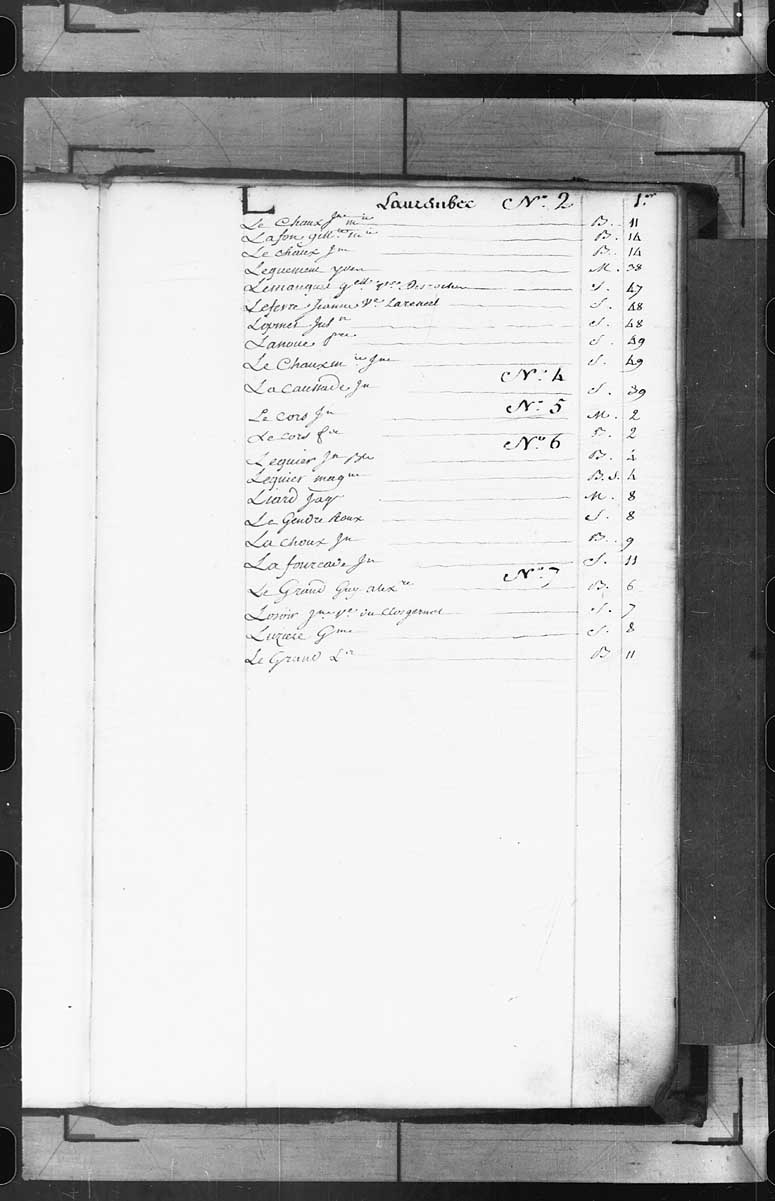 L Lauronbec Nº 2 1.er
Le Choux Jne mie B. 11
Lafon guill.me B. 14
Le choux Jn B. 14
Lequement yven M. 38
Lemanquai gell S. 47
Lefevre Jeanne Ve Larenoel S. 48
Lormet Juln S. 48
Lanoue S. 49
Le Chaux mie Jne S. 49
Nº 4
La Caussade Jn S. 39
Nº 5
Le cors Jn M. 2
Le cors B. 2
Nº 6
Lequier Jn Bte B. 4
Lequier magne B. S. 4
Liard Jaqs M. 8
Le Gendre Roux S. 8
La choux Jn B. 9
La fourcade Jn S. 11
Nº 7
Le Grand Guy alexre B. 6
Losoir Jne Ve du Closgernol S. 7
Luziere Gme S. 8
Le Grand Ls B 11